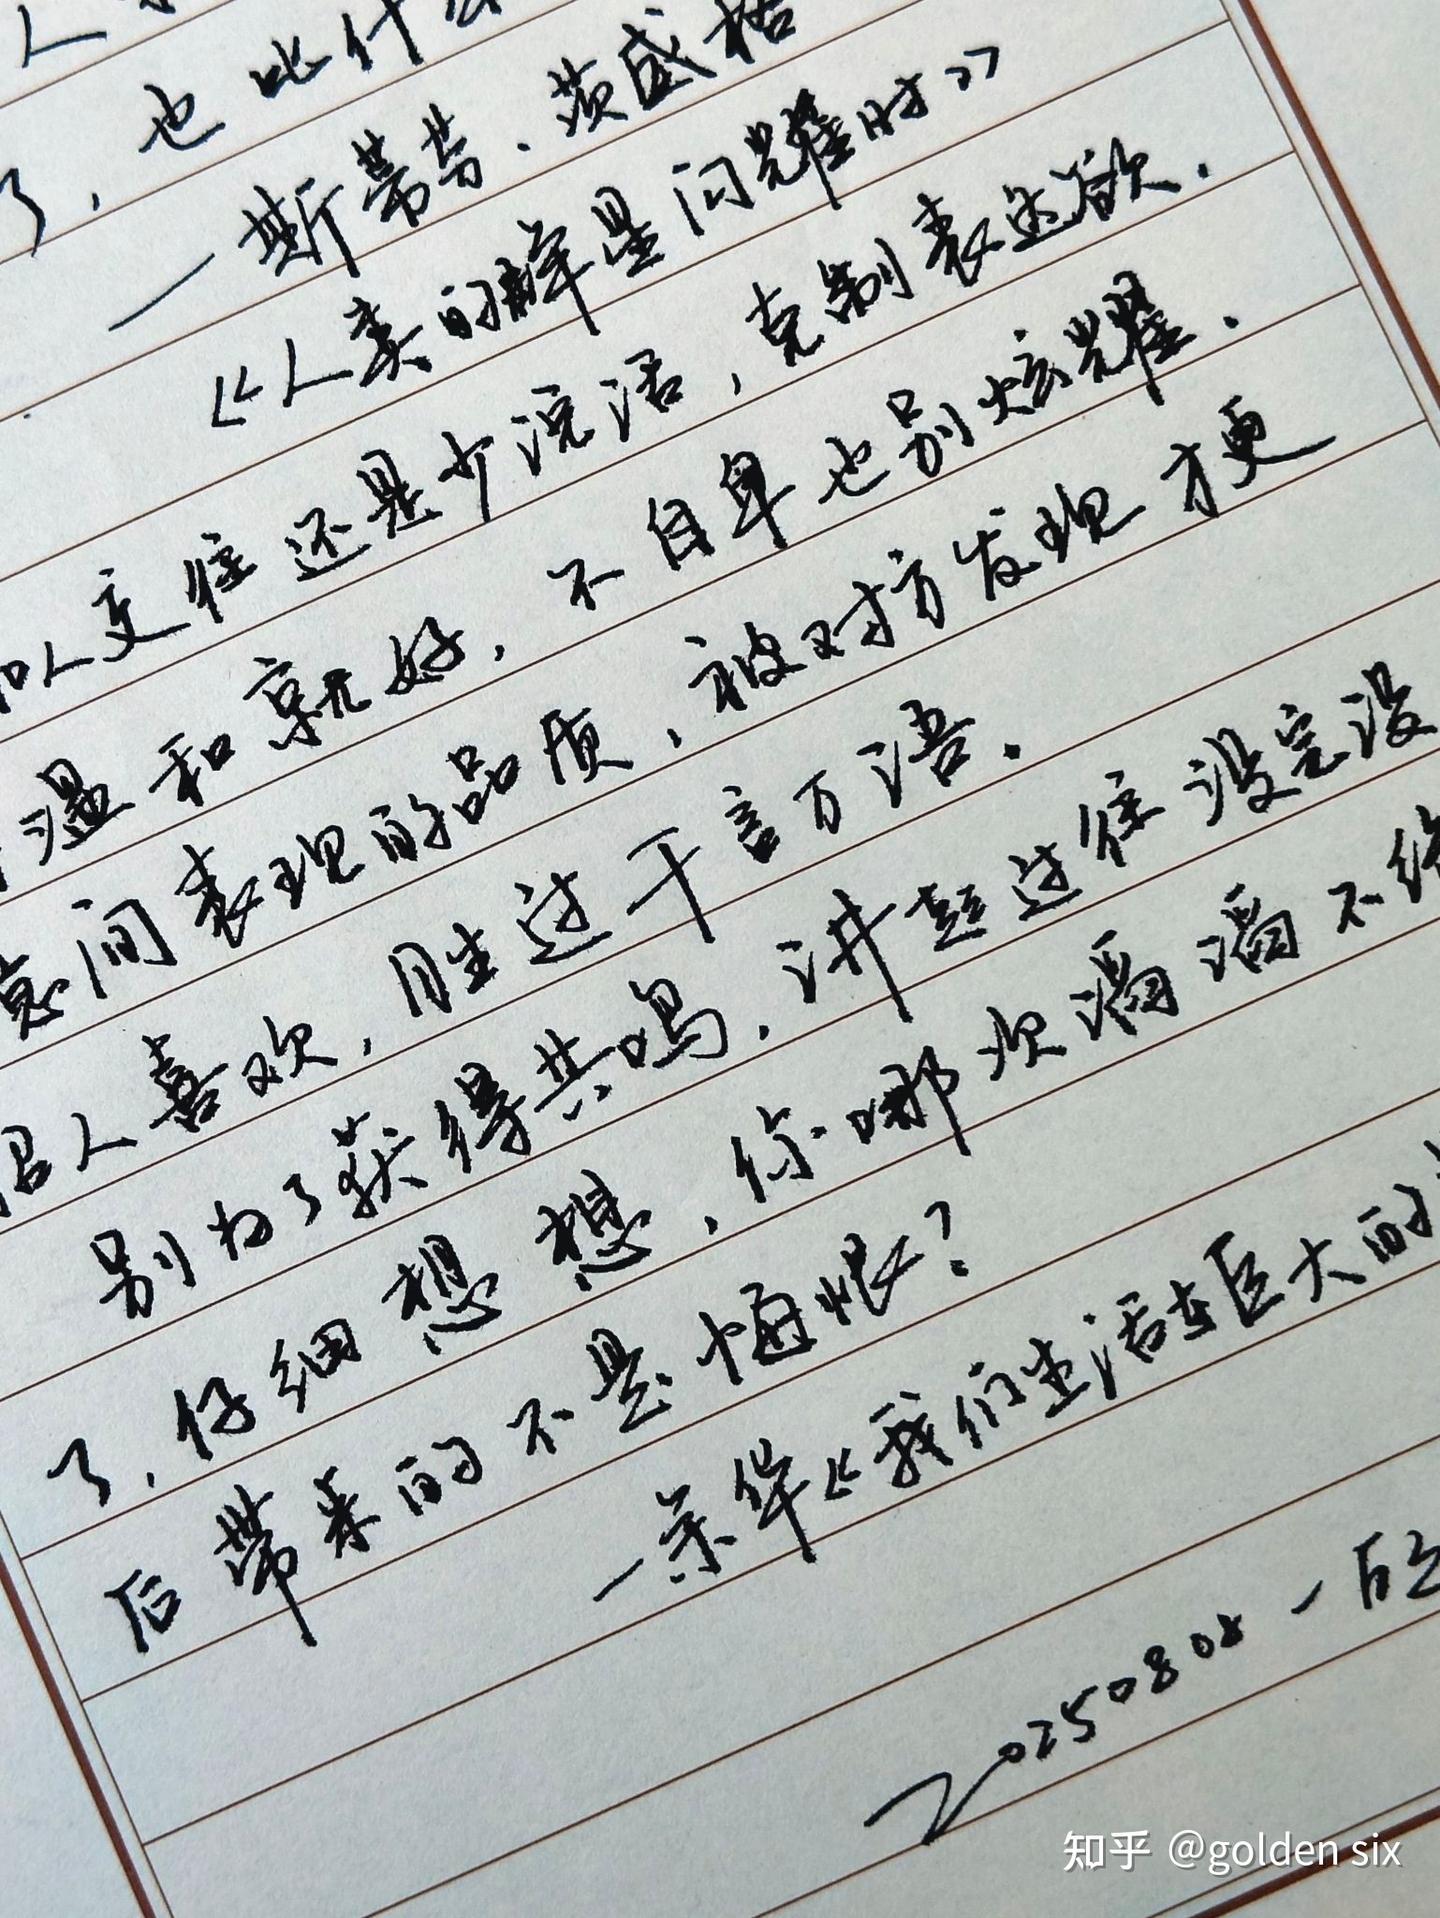 了，也比什么
一斯蒂芬·茨威格
《人类的群星闪耀时》
和人交往还是少说话，克制表达欲.
温和就好，不自卑也别炫耀.
间表现的品质，被对方发现才更
招人喜欢，胜过千言万语.
别为了获得共鸣，讲起过往没完没
了，仔细想想，你哪次滔滔不绝
后带来的不是悔恨？
一余华《我们生活在巨大的
20250808一
知乎 @golden six